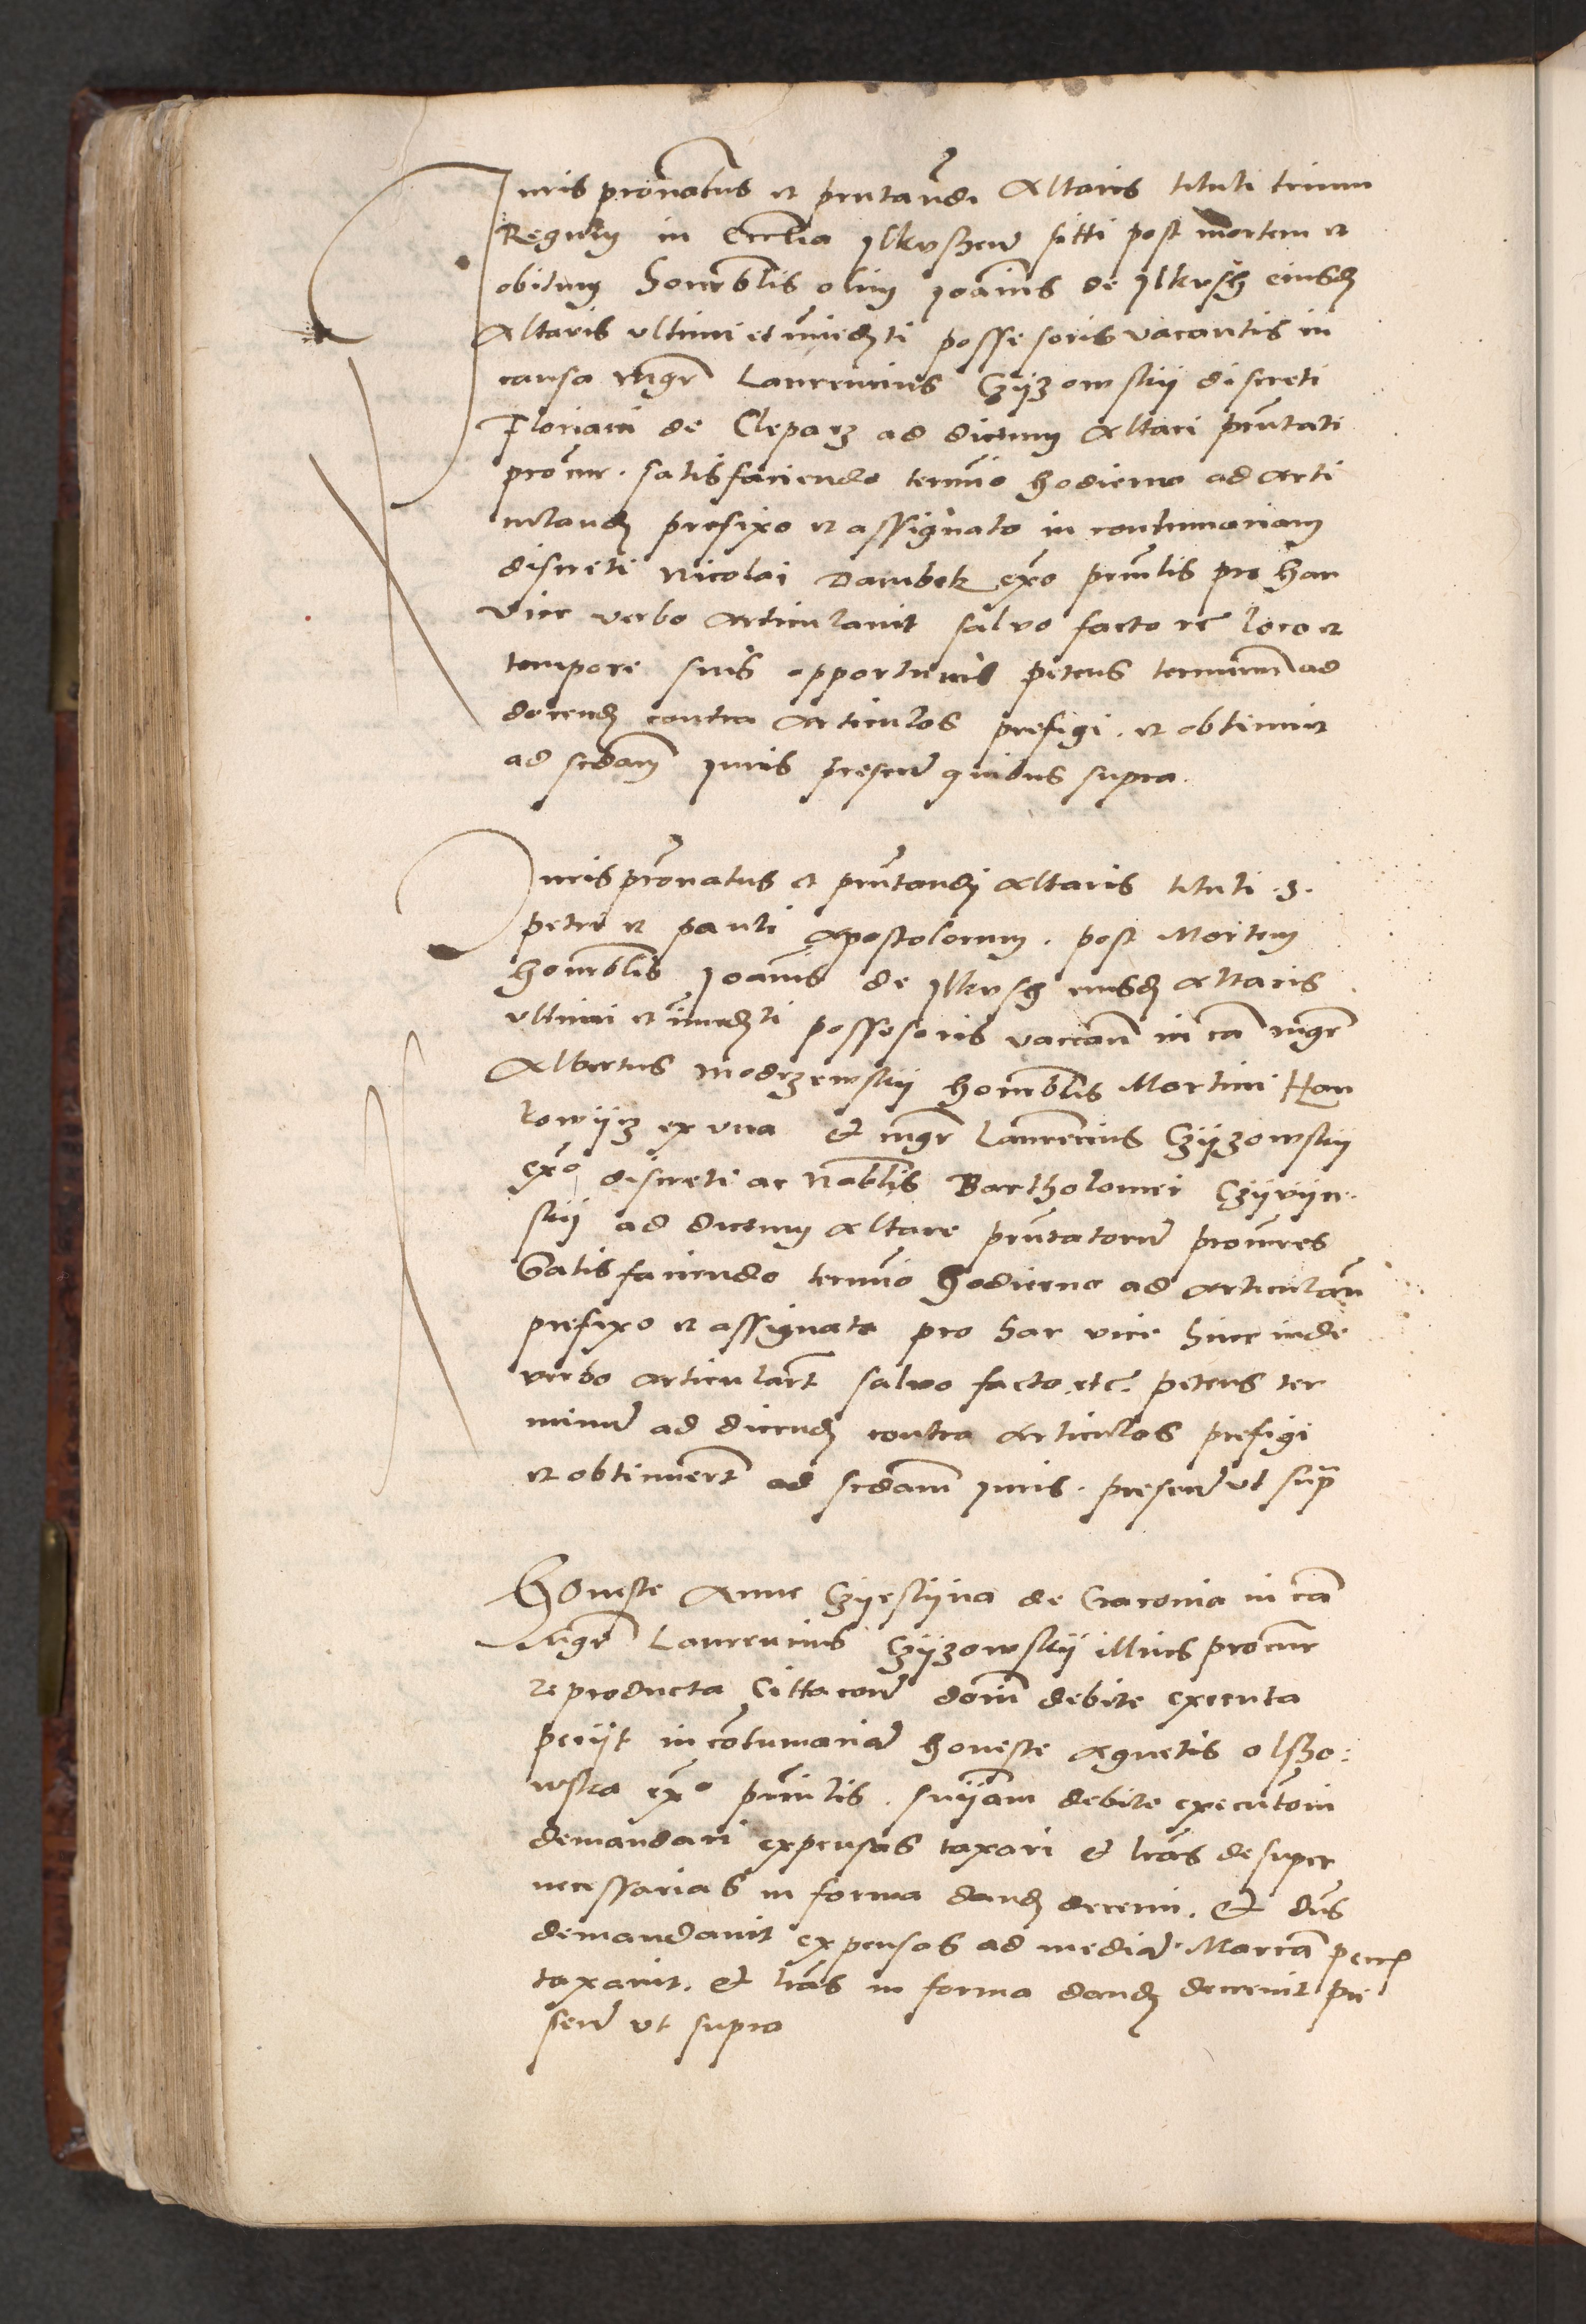 Iuris pronatus et pntandi Altaris tituli trium
Regum in Ecclia Ilkuszen sitti post mortem et
obitum honorblis olim Joannis de Ilkusch eiusd
Altaris ultimi et imediti possesoris vacantis in
causa mgr Laurencius Czyzowsky discreti
Floriani de Clepars ad dictum Altari pntati
procur. satisfaciendo termio hodierno ad Arti
culand prefixo et assignato in contumaciam
discreti Nicolai Dambek exo pntis pro hac
vice verbo Articulavit salvo facto etc loco et
tempore suis opportunis petens terminum ad
docend contra Articulos prefigi. et obtinuit
ad scdam Iuris presen quibus supra.
Iuris pronatus et pntandi Altaris tituli .S.
petri et pauli Apostolorum. post Mortem
honorblis Joannis de Ilkusch eiusd Altaris
ultimi et imediti possesoris vaccan in ca mgr
Albertus Modrzewsky honorblis Martini Han
kowycz ex una et mgr Laurencius Czyzowsky
exo discreti ac Nobilis Bartholomei
sky ad dictum Altare pntatorum procures
Satisfaciendo termio hodierno ad articulan
prefixo et assignato pro hac vice hinc inde
verbo articulart salvo facto etc. petens ter
minum ad dicend contra Articulos prefigi
et obtinuert ad scdam Iuris. presen ut supra
Honeste Anne de Cracovia in ca
mgr Laurencius Czyzowsky illius procur
reproducta Cittacon domi debite executa
petiit in contumaciam honeste Agnetis olscho:
wska exo pntis. debite
demandari expensas taxari et lras desuper
necessarias in forma dand decerni. Et dns
demandavit expensas ad mediam Marcam pecc
taxavit. et lras in forma dand decrevit pre
sen ut supra